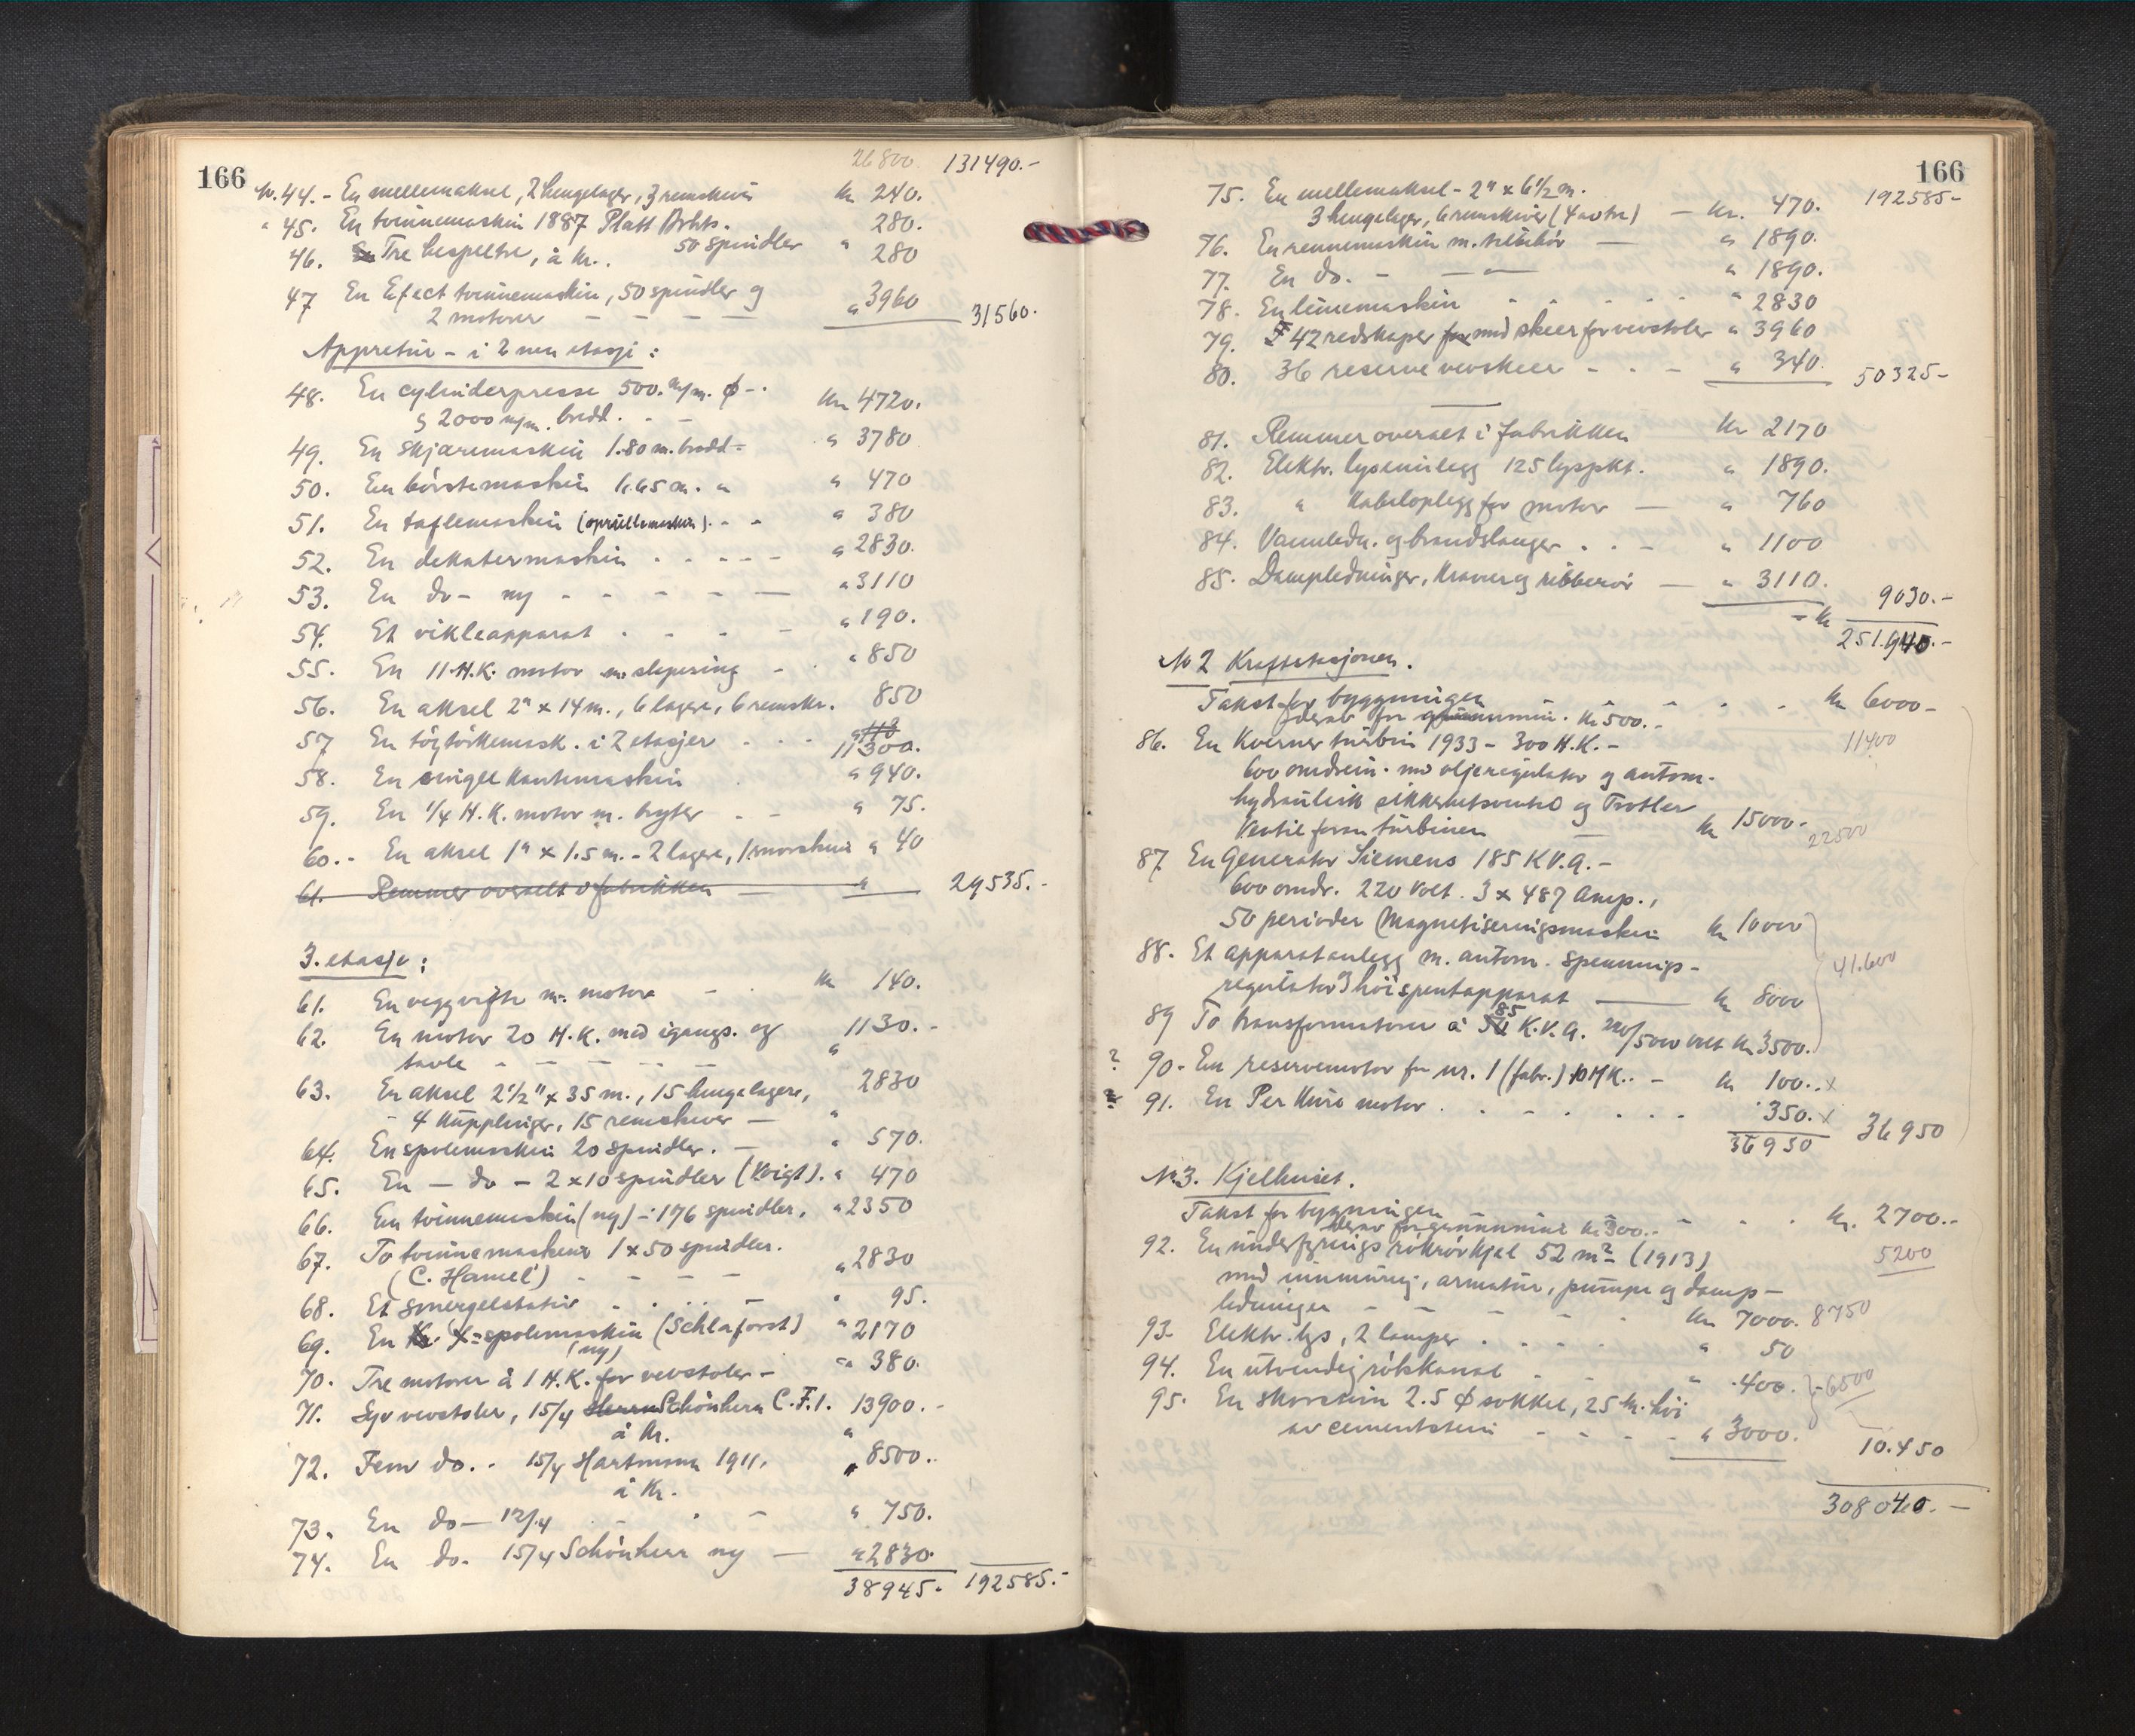 166
26800. 131490.-
Nr. 44. - En mellemaksel, 2 hengelager, 3 remskiver kr 240.
" 45. En tvinnemaskin 1887 Platt Brhts. 280.
50 spindler "
46. Tre haspeltre, à kr. . 280
47 En Efect tvinnemaskin, 50 spindler og
2 motorer - - - - " 3960 31560.
Appretur - i 2nen etasje :
48. En cylinderpresse 500 m/m. φ - .
g 2000 m/m. bredd. - - kr 4720.
49. En Skjæremaskin 1.80 m. bredd - " 3780
50. En børstemaskin 1,65 m. " " 470
51. En taflemaskin (oprullemaskin). - - " 380
52. En dekatermaskin . . - - - " 2830.
53. En do - ny - - - - - " 3110
54. Et vikleapparat . - - - " 190.
55. En 11 H.K. motor m. slepering - . " 850
56. En aksel 2" x 14 m., 6 lagere, 6 remskr. 850
57 En tøitørkemask. i 2 etasjer . . . 11300.
58. En singel kantemaskin . " 940.
59. En 1/4 H.K. motor m. bryter - - " 75.
60. - En aksel 1" x 1.5 m. - 2 lagere, 1 snorskive " 40
61. Remmer overalt i fabrikken " 29535.-
3. etasje :
61. En veggvifte m. motor - . kr 140.
62. En motor 20 H.K. med igangs. og
tavle - - - - - - " 1130.-
63. En aksel 2 1/2" x 35 m., 15 hengelagere, 2830
- 4 kupplinger, 15 remskiver - "
64. En spolemaskin 20 spindler. - " 570.
65. En - do - 2 x 10 spindler (Voigt). " 470
66. En tvinnemaskin (ny) - 176 spindler. " 2350
67. To tvinnemaskiner 1 x 50 spindler.
(C. Hamel) - - - - " 2830
68. Et smergelstativ - . . . - " 95.
69. En X-spolemaskin (Schlaforst) " 2170
(ny)
70. Tre motorer à 1 H.K. for vevstoler - " 380.
71. Syv vevstoler, 15/4 Schönherr C.F.1. 13900.-
à kr. "
72. Fem do. . 15/4 Hartmann 1911. " 8500..
à kr.
73. En do - 12/4 - . - " 750.
74. En do. 15/4 Schönherr ny - " 2830.
38945. 192585.-
166
75. En mellemaksel - 2" x 6 1/2 m. 192585-
3 hengelager, 6 remskiver (4 av tre) - kr. 470.
76. En rennemaskin m. tilbehør - " 1890.
77. En do. - - " - " 1890.
78. En limemaskin - - . . - " 2830
79. 42 redskaper med skeer for vevstoler " 3960
80. 36 reserve vevskeer - - - " 340. 50325-
81. Remmer overalt i fabrikken kr 2170
82. Elektr. lysanlegg 125 lyspkt. " 1890.
83. " Kabeloplegg for motor - " 760
84. Vannledn. og brandslanger . . - " 1100
85. Dampledninger, Kraner og ribberør - " 3110. 9030.-
- kr 251.940.-
Nr 2 Kraftstasjonen.
Takst for bygningen - - . - kr 6000-
derav for grunnmur. kr 500.-
11400
86. En Kverner turbin 1933 - 300 H.K. -
600 omdrein. med oljeregulator og autom.
hydraulisk sikkerhetsventil og Trotler
Ventil foran turbinen - kr 15000. 22500
87 En Generator Siemens 185 K.V.A. -
600 omdr. 220 Volt. 3 x 487 Amp.,
50 perioder (Magnetiseringsmaskin kr 10000
88. Et apparatanlegg m. autom. spennings-
regulator og høispentapparat - kr 8000 41.600
89 To transformatorer à 85 K.V.A. 220/5000 volt kr 3500.
? 90. En reservemotor for nr. 1 (fabr.) 10 HK.. - kr 100.. x
? 91. En Per Kure motor . . - . . . . 350. x
36950 36950
Nr 3. Kjelhuset.
Takst for bygningen - . . kr. 2700.-
derav for grunnmur kr 300.-
5200
92. En underfyrings røkrørkjel 52 m² (1913)
med innmuring, armatur, pumpe og damp-
ledninger - - - - . kr 7000. 8750
93. Elektr. lys, 2 lamper . . . . . " 50
94. En utvendig røkkanal . . . " 400.
6500
95. En skorstein 2.5 φ sokkel, 25 m. høi
av cementstein - - - - " 3000. 10.450
308040.-